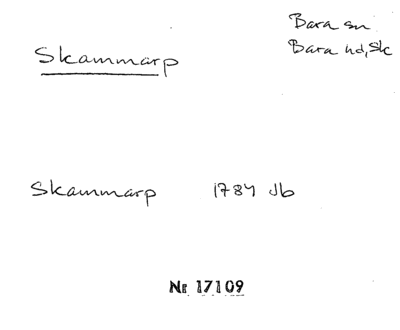 Bara sn
Bara hd, Sk
Skammarp
Skammarp 1784 Jb
Nr 17109